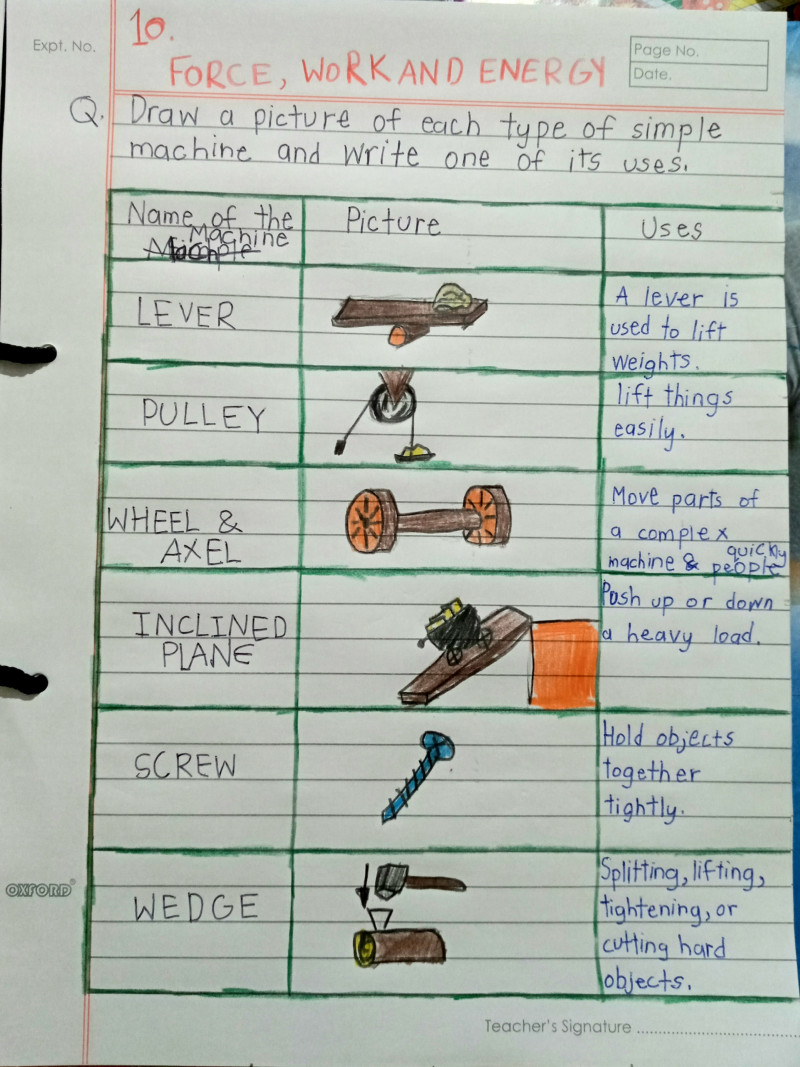 Expt. No.
10.
Page No.
Date.
FORCE, WORK AND ENERGY
Q. Draw a picture of each type of simple
machine and write one of its uses.
Name of the
Machine
Picture
Uses
LEVER
A lever is
used to lift
weights.
PULLEY
lift things
easily.
WHEEL &
AXEL
Move parts of
a complex
machine & people quickly
INCLINED
PLANE
Push up or down
a heavy load.
SCREW
Hold objects
together
tightly.
WEDGE
Splitting, lifting,
tightening, or
cutting hard
objects.
OXFORD®
Teacher's Signature